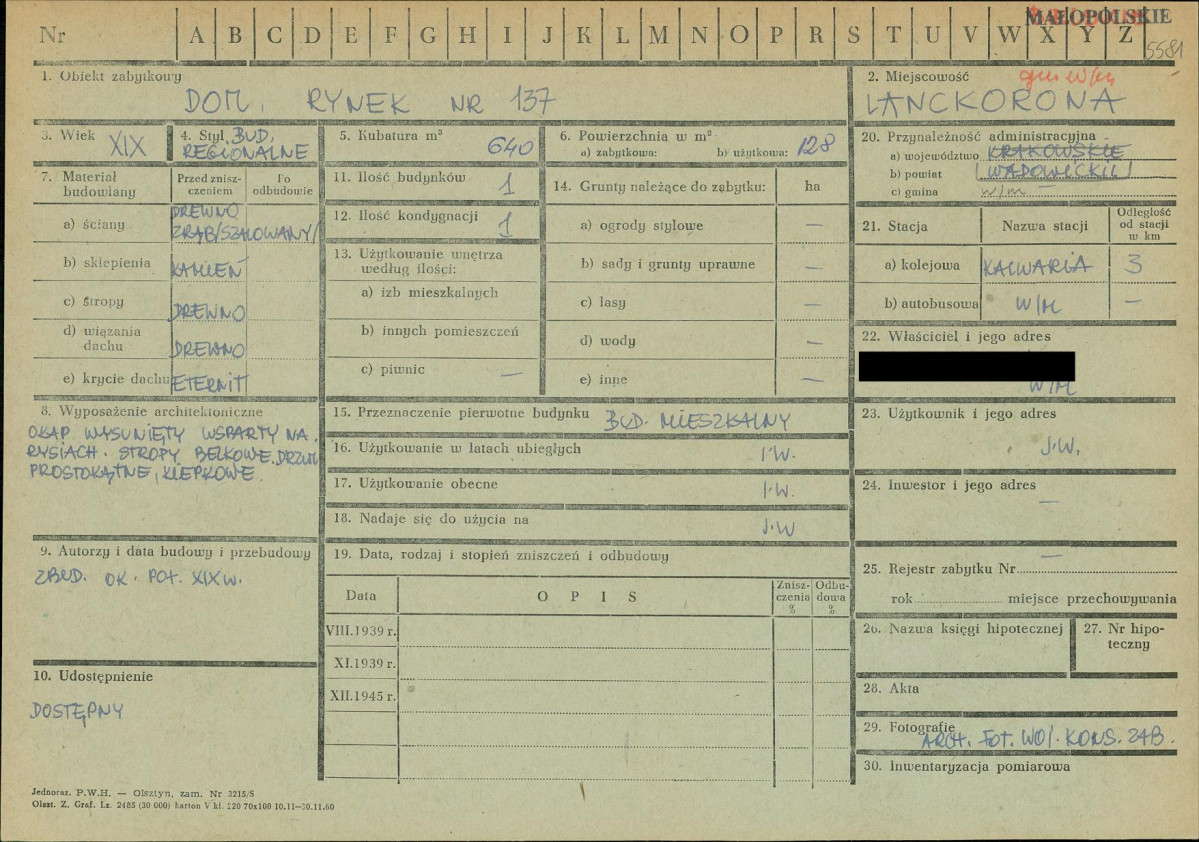 Nr A B C D E F G H I J K L M N O P R S T U V W X Y Z
MAŁOPOLSKIE
5581
1. Obiekt zabytkowy
DOM. RYNEK NR 137
2. Miejscowość
LANCKORONA
3. Wiek XIX
4. Styl BUD. REGIONALNE
5. Kubatura m³ 640
6. Powierzchnia w m²
a) zabytkowa: b) użytkowa: 128
20. Przynależność administracyjna
a) województwo KRAKOWSKIE
b) powiat WADOWICKIE
c) gmina w/m —
7. Materiał budowlany
Przed zniszczeniem
Po odbudowie
a) ściany DREWNO ZRĄB/SZALOWANY/
b) sklepienia KAMIEŃ
c) stropy DREWNO
d) wiązania dachu DREWNO
e) krycie dachu ETERNIT
11. Ilość budynków 1
12. Ilość kondygnacji 1
13. Użytkowanie wnętrza według ilości:
a) izb mieszkalnych
b) innych pomieszczeń
c) piwnic —
14. Grunty należące do zabytku: ha
a) ogrody stylowe —
b) sady i grunty uprawne —
c) lasy —
d) wody —
e) inne —
21. Stacja
Nazwa stacji
Odległość od stacji w km
a) kolejowa KALWARIA 3
b) autobusowa W/M —
22. Właściciel i jego adres
W/M
8. Wyposażenie architektoniczne
OKAP WYSUNIĘTY WSPARTY NA
RYSIACH. STROPY BELKOWE. DRZWI
PROSTOKĄTNE, KLEPKOWE.
15. Przeznaczenie pierwotne budynku BUD. MIESZKALNY
16. Użytkowanie w latach ubiegłych J.W.
17. Użytkowanie obecne J.W.
18. Nadaje się do użycia na J.W
23. Użytkownik i jego adres
J.W.
24. Inwestor i jego adres
—
9. Autorzy i data budowy i przebudowy
ZBUD. OK. POŁ. XIX W.
19. Data, rodzaj i stopień zniszczeń i odbudowy
Data
OPIS
Zniszczenia %
Odbudowa %
VIII.1939 r.
XI.1939 r.
XII.1945 r.
25. Rejestr zabytku Nr —
rok miejsce przechowywania
26. Nazwa księgi hipotecznej
27. Nr hipoteczny
28. Akta
10. Udostępnienie
DOSTĘPNY
29. Fotografie
ARCH. FOT. WOJ. KONS. ZAB.
30. Inwentaryzacja pomiarowa
Jednoraz. P.W.H. — Olsztyn, zam. Nr 3215/S
Olszt. Z. Graf. Lz. 2485 (30 000) karton V kl. 220 70x100 10.11—30.11.60